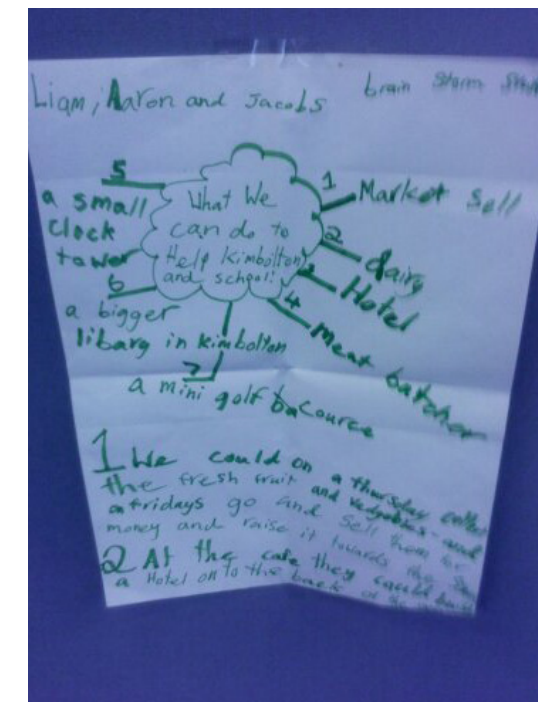 Liam, Aaron and Jacobs
brain Storm
What We
can do to
Help Kimbolton
and school!
1 Market Sell
2 dairy
3 Hotel
4 meat batcher
5
a small
clock
tower
6
a bigger
libary in Kimbolton
7
a mini golf
1 We could on a thursday collect
the fresh fruit and vedgables and
fridays go and sell them for
money and raise it towards the
2 At the cafe they could
a Hotel on to the back of the